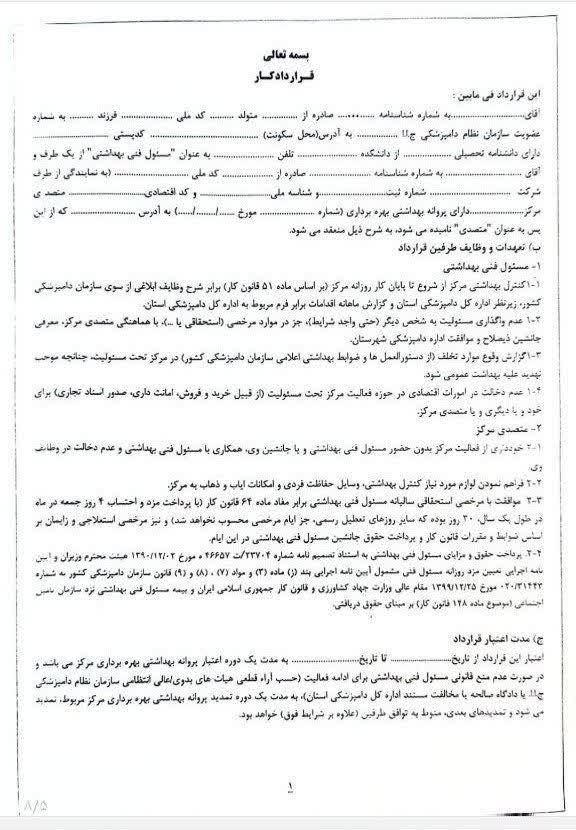 بسمه تعالی
قرارداد کار
این قرارداد فی مابین :
آقای....................به شماره شناسنامه ............ صادره از ............ متولد ............ کد ملی .................... فرزند ......... به شماره
عضویت سازمان نظام دامپزشکی ج.ا.ا ............ به آدرس(محل سکونت) .............................. کدپستی ....................
دارای دانشنامه تحصیلی .................. از دانشکده ............ تلفن .................. به عنوان "مسئول فنی بهداشتی" از یک طرف و
آقای .................... به شماره شناسنامه .................. صادره از ............ کد ملی .................... (به نمایندگی از طرف
شرکت .................... شماره ثبت....................و شناسه ملی.................... و کد اقتصادی.................... متصدی
مرکز....................دارای پروانه بهداشتی بهره برداری (شماره .................. مورخ ....../....../......) به آدرس .................. که از این
پس به عنوان "متصدی" نامیده می شود، به شرح ذیل منعقد می شود.
ب) تعهدات و وظایف طرفین قرارداد
۱- مسئول فنی بهداشتی
۱-۱کنترل بهداشتی مرکز از شروع تا پایان کار روزانه مرکز (بر اساس ماده ۵۱ قانون کار) برابر شرح وظایف ابلاغی از سوی سازمان دامپزشکی
کشور، زیرنظر اداره کل دامپزشکی استان و گزارش ماهانه اقدامات برابر فرم مربوط به اداره کل دامپزشکی استان.
۱-۲ عدم واگذاری مسئولیت به شخص دیگر (حتی واجد شرایط)، جز در موارد مرخصی (استحقاقی یا ...)، با هماهنگی متصدی مرکز، معرفی
جانشین ذیصلاح و موافقت اداره دامپزشکی شهرستان.
۱-۳گزارش وقوع موارد تخلف (از دستورالعمل ها و ضوابط بهداشتی اعلامی سازمان دامپزشکی کشور) در مرکز تحت مسئولیت، چنانچه موجب
تهدید علیه بهداشت عمومی شود.
۱-۴ عدم دخالت در امورات اقتصادی در حوزه فعالیت مرکز تحت مسئولیت (از قبیل خرید و فروش، امانت داری، صدور اسناد تجاری) برای
خود و یا دیگری و یا متصدی مرکز.
۲- متصدی مرکز
۲-۱ خودداری از فعالیت مرکز بدون حضور مسئول فنی بهداشتی و یا جانشین وی، همکاری با مسئول فنی بهداشتی و عدم دخالت در وظایف
وی.
۲-۲ فراهم نمودن لوازم مورد نیاز کنترل بهداشتی، وسایل حفاظت فردی و امکانات ایاب و ذهاب به مرکز.
۲-۳ موافقت با مرخصی استحقاقی سالیانه مسئول فنی بهداشتی برابر مفاد ماده ۶۴ قانون کار (با پرداخت مزد و احتساب ۴ روز جمعه در ماه
در طول یک سال، ۳۰ روز بوده که سایر روزهای تعطیل رسمی، جز ایام مرخصی محسوب نخواهد شد) و نیز مرخصی استعلاجی و زایمان بر
اساس ضوابط و مقررات قانون کار و پرداخت حقوق جانشین مسئول فنی بهداشتی در این ایام.
۲-۴ پرداخت حقوق و مزایای مسئول فنی بهداشتی به استناد تصمیم نامه شماره ۲۳۷۰۴/ت ۴۶۶۵۷ ه مورخ ۱۳۹۰/۱۲/۰۲ هیئت محترم وزیران و آیین
نامه اجرایی تعیین مزد روزانه مسئول فنی مشمول آیین نامه اجرایی بند (ز) ماده (۳) و مواد (۷) ، (۸) و (۹) قانون سازمان دامپزشکی کشور به شماره
۰۲۰/۳۱۴۴۳ مورخ ۱۳۹۹/۱۲/۲۵ مقام عالی وزارت جهاد کشاورزی و قانون کار جمهوری اسلامی ایران و بیمه مسئول فنی بهداشتی نزد سازمان تامین
اجتماعی (موضوع ماده ۱۴۸ قانون کار) بر مبنای حقوق دریافتی.
ج) مدت اعتبار قرارداد
اعتبار این قرارداد از تاریخ.................... تا تاریخ.................... به مدت یک دوره اعتبار پروانه بهداشتی بهره برداری مرکز می باشد و
در صورت عدم منع قانونی مسئول فنی بهداشتی برای ادامه فعالیت (حسب آراء قطعی هیات های بدوی/عالی انتظامی سازمان نظام دامپزشکی
ج.ا.ا. یا دادگاه صالحه یا مخالفت مستند اداره کل دامپزشکی استان)، به مدت یک دوره تمدید پروانه بهداشتی بهره برداری مرکز مربوط، تمدید
می شود و تمدیدهای بعدی، منوط به توافق طرفین (علاوه بر شرایط فوق) خواهد بود.
۱
۸/۵